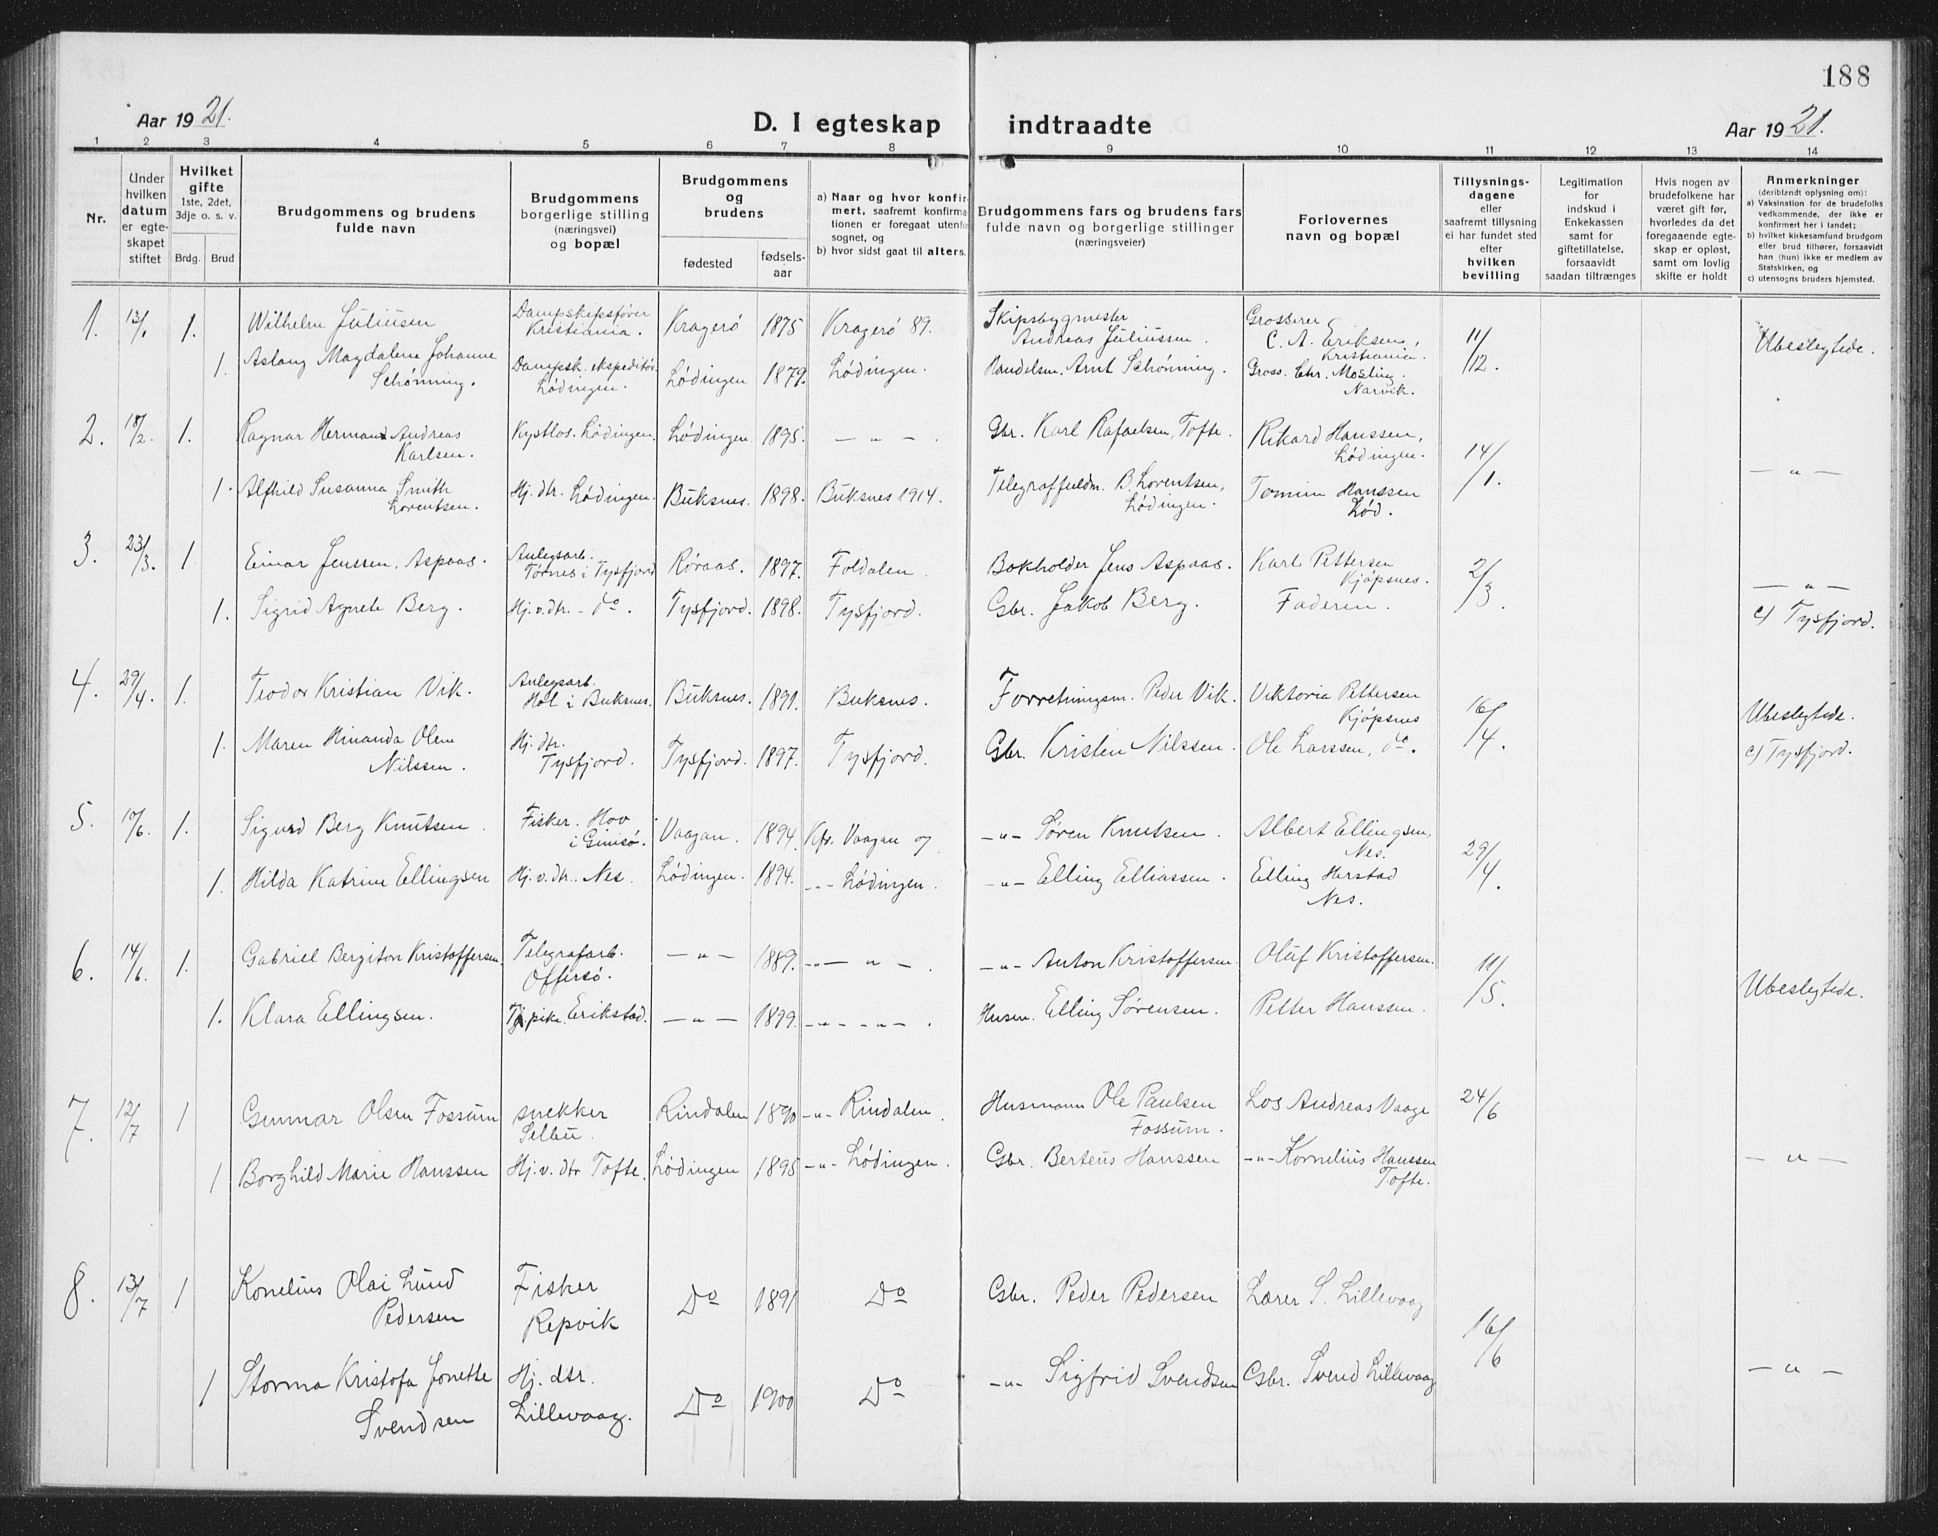 188
Aar 1921.
D. I egteskap indtraadte
Aar 1921.
1 2 3 4 5 6 7 8 9 10 11 12 13 14
Nr.
Under
hvilken
datum
er egte-
skapet
stiftet
Hvilket
gifte
1ste, 2det,
3dje o. s. v.
Brdg. Brud
Brudgommens og brudens
fulde navn
Brudgommens
borgerlige stilling
(næringsvei)
og bopæl
Brudgommens
og
brudens
fødested
fødsels-
aar
a) Naar og hvor konfir-
mert, saafremt konfirma-
tionen er foregaat utenfo
sognet, og
b) hvor sidst gaat til alters.
Brudgommens fars og brudens fars
fulde navn og borgerlige stillinger
(næringsveier)
Forlovernes
navn og bopæl
Tillysnings-
dagene
eller
saafremt tillysning
ei har fundet sted
efter
hvilken
bevilling
Legitimation
for
indskud i
Enkekassen
samt for
giftetillatelse,
forsaavidt
saadan tiltrænges
Hvis nogen av
brudefolkene har
været gift før,
hvorledes da det
foregaaende egte-
skap er opløst,
samt om lovlig
skifte er holdt
Anmerkninger
(deriblandt oplysning om):
a) Vaksination for de brudefolks
vedkommende, der ikke er
konfirmert her i landet;
b) hvilket kirkesamfund brudgom
eller brud tilhører, forsaavidt
han (hun) ikke er medlem av
Statskirken, og
c) utensogns bruders hjemsted.
1. 13/1 1. Wilhelm Juliusen Dampskipsfører Kristiania. Kragerö 1875 Kragerö 89. Skipsbygmester Andreas Juliussen. Grosserer C. A. Eriksen, Kristiania. 11/12. Ubeslegtede.
1. Aslaug Magdalene Johanne Schønning. Dampsk. ekspeditør Lödingen. Lödingen 1879. Lödingen. Handelsm. Arnt Schønning. Gross. Chr. Mosling. Narvik.
2. 18/2. 1. Ragnar Herman Andreas Karlsen. Kystlos. Lödingen. Lödingen 1895. — " — . Gbr. Karl Rafaelsen, Tofte. Rikard Hanssen, Lödingen. 14/1. — " —
1. Alfhild Susanna Smith Lorentsen. Hj. dtr. Lödingen. Buksnes. 1898. Buksnes 1914. B. Lorentsen, Lödingen. Hanssen Lød.
3. 23/3. 1. Einar Jenssen Aspaas. Anlegsarb. Tørnes i Tysfjord Røraas. 1897. Foldalen. Bokholder Jens Aspaas. Karl Pettersen Kjöpsnes. 2/3. — " —
1. Sigrid Agnete Berg. Hj. v. dtr. - do. Tysfjord. 1898. Tysfjord. Gbr. Jakob Berg. Faderen. c) Tysfjord.
4. 29/4. 1. Teodor Kristian Vik. Anlegsarb. Hol i Buksnes. Buksnes. 1891. Buksnes. Forretningsm. Peder Vik. Viktoria Pettersen Kjöpsnes 16/4. Ubeslegtede.
1. Maren Hinanda Oline Nilssen. Hj. dtr. Tysfjord. Tysfjord. 1897. Tysfjord. Gbr. Kristen Nilssen. Ole Larssen, do. c) Tysfjord.
5. 10/6. 1. Sigurd Berg Knutsen. Fisker. Hov i Gimsö. Vaagan. 1894. Kfr. Vaagan og - " - Sören Knutsen. Albert Ellingsen, Nes. 29/4.
1. Hilda Katrine Ellingsen Hj. v. dtr. Nes. Lödingen. 1894. - " - Lödingen. - " - Elling Elliassen. Elling Herstad Nes.
6. 14/6. 1. Gabriel Bergiton Kristoffersen. Telegrafarb. Offersö. — " — 1889. - " - — " — . - " - Anton Kristoffersen. Olaf Kristoffersen. 11/5. Ubeslegtede.
1. Klara Ellingsen. Tj. pike. Erikstad. — " — 1899. - " - - " - . Husm. Elling Sørensen. Petter Hanssen.
7. 12/7 1 Gunnar Olsen Fossum snekker Selbu. Rindalen 1890 - " - Rindalen. Husmann Ole Paulsen Fossum. Los Andreas Vaage 24/6
1 Borghild Marie Hanssen Hj. v. dtr Tofte. Lödingen 1895 - " - Lödingen. Gbr. Berteus Hanssen - " - Kornelius Hanssen Tofte. — " —
8. 13/7 1 Konelius Olai Lund Pedersen Fisker Repvik Do 1891 Do Gbr. Peder Pedersen Lærer S. Lillevaag 16/6
1 Storma Kristofa Jonette Svendsen Hj. dtr. Lillevaag. Do 1900 Do - " - Sigfrid Svendsen Gbr. Svend Lillevaag — " —